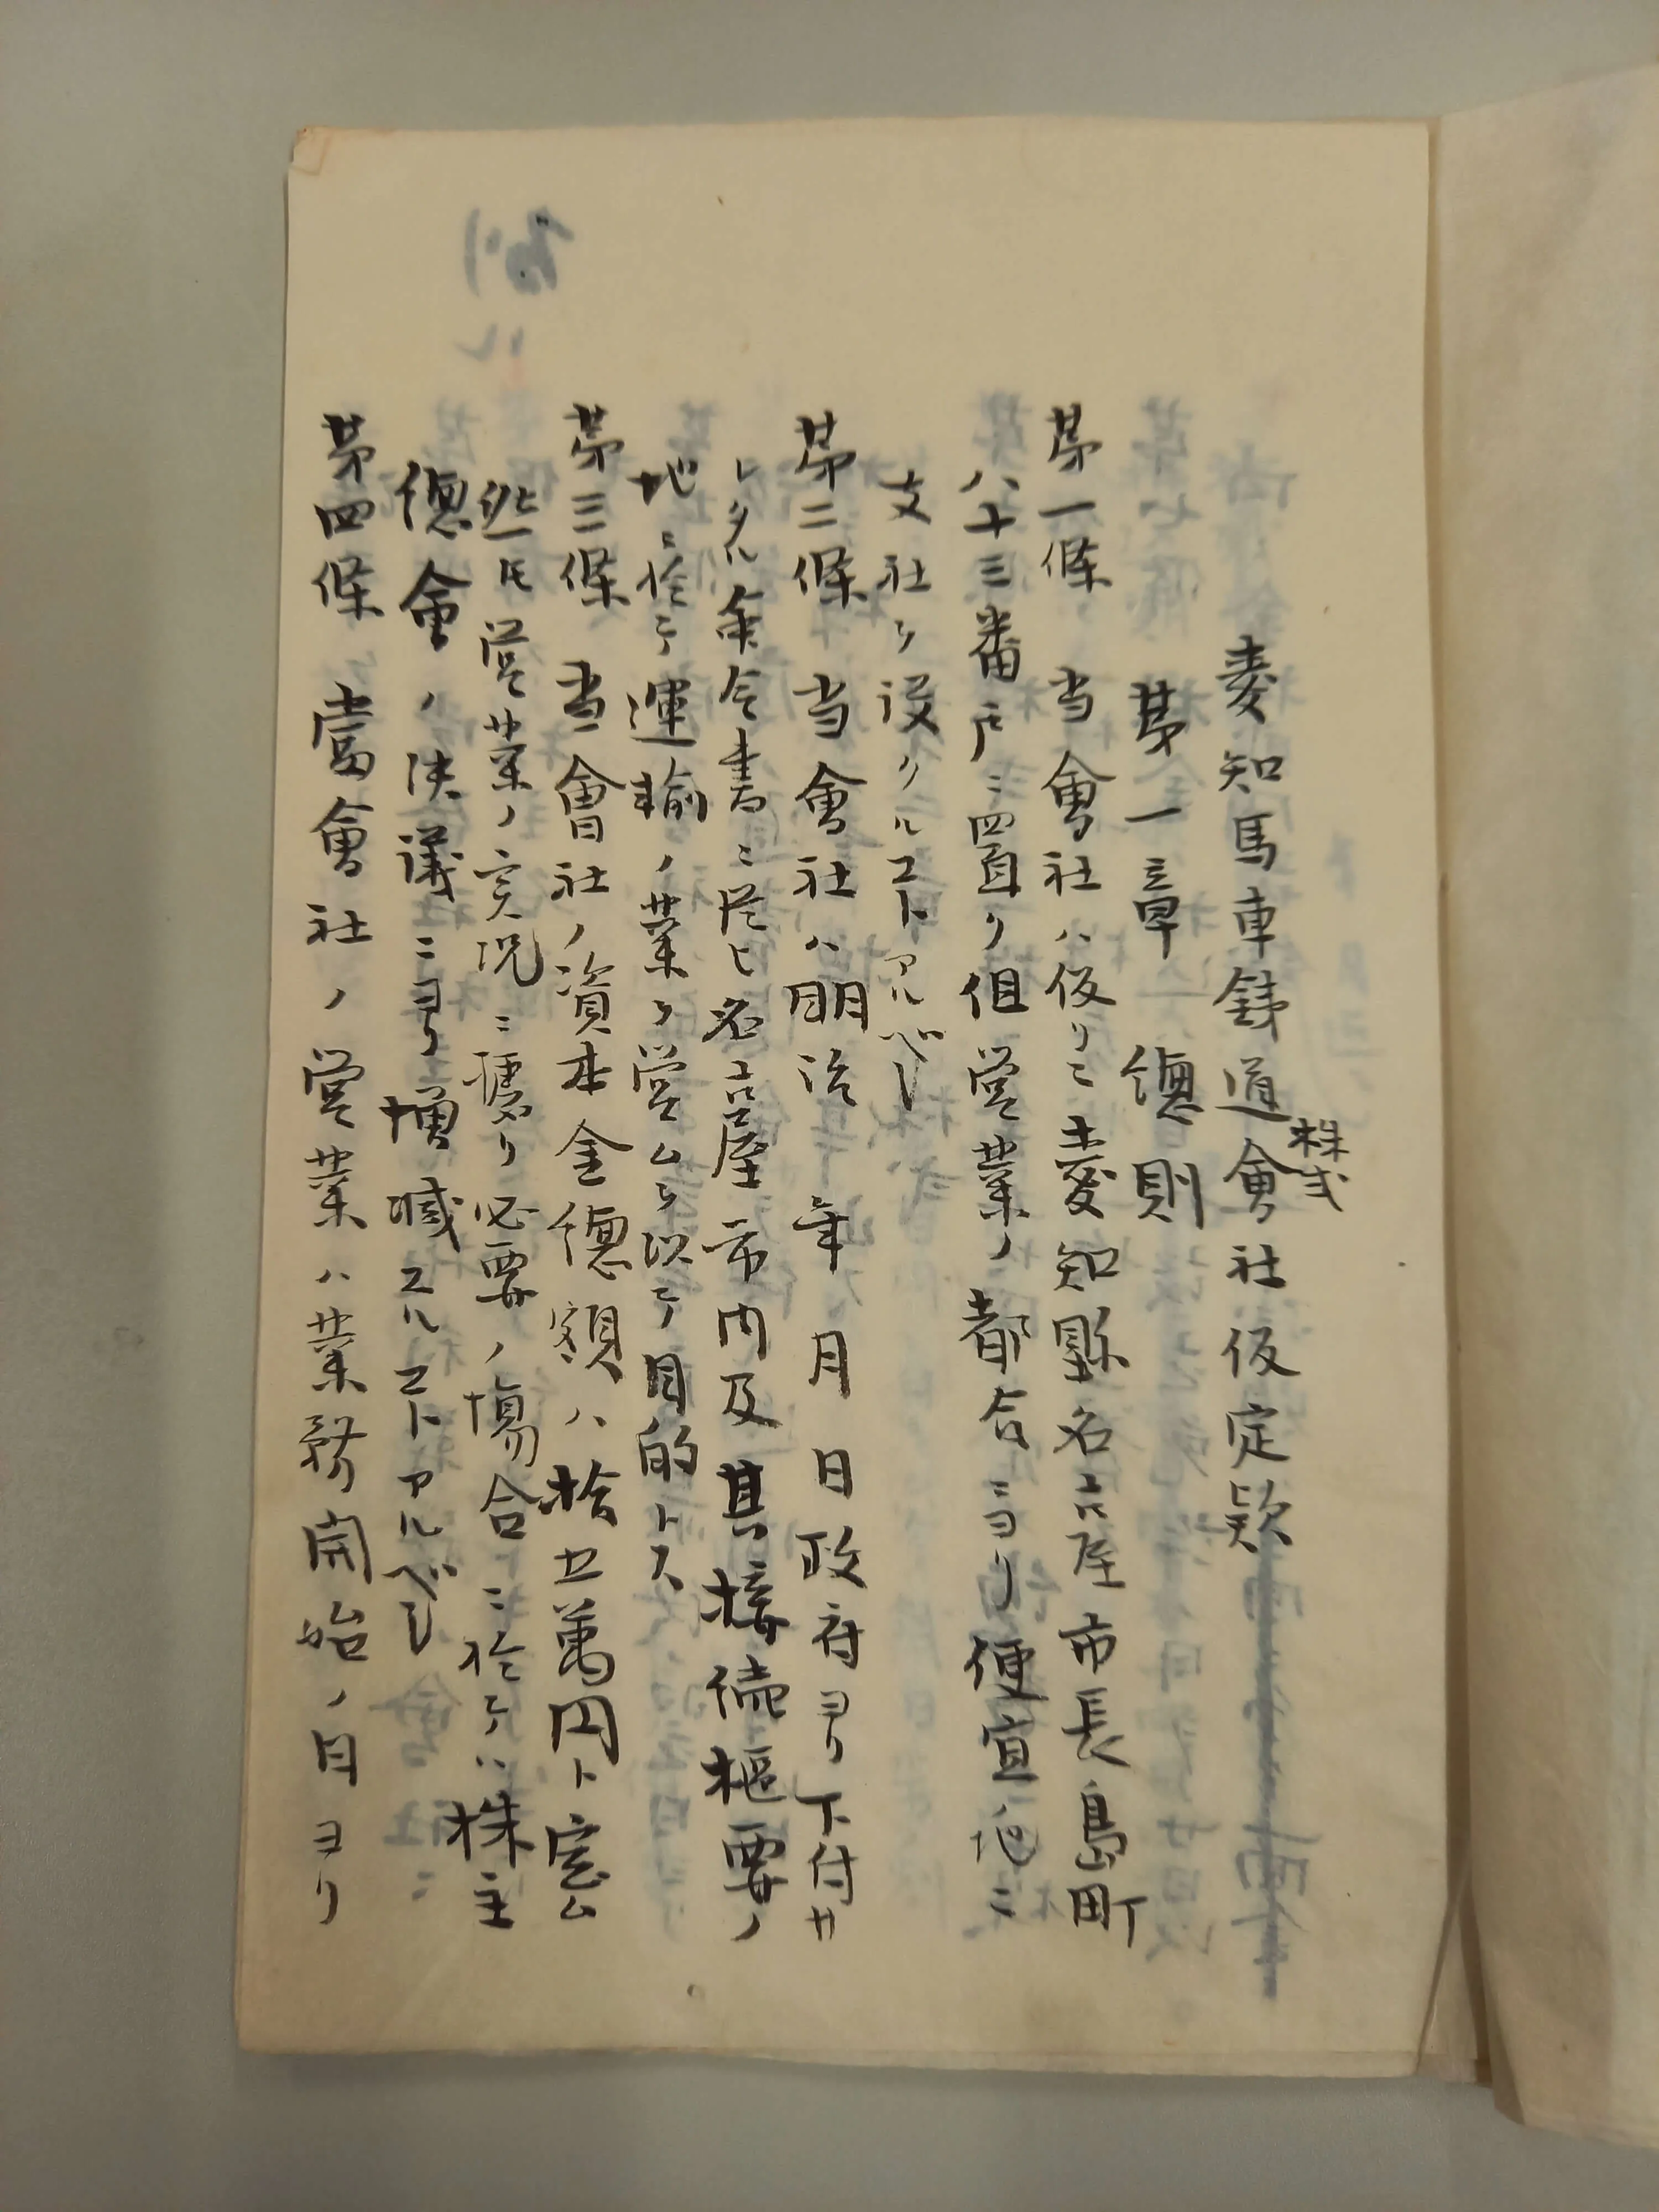 愛知馬車鉄道株式會社仮定款
第一章 總則
第一條 当會社ハ仮リニ愛知縣名古屋市長島町
八十三番戸ニ置ク但営業ノ都合ニヨリ便宜ノ地ニ
支社ヲ設クルコトアルベシ
第二條 当會社ハ明治 年 月 日政府ヨリ下付サ
レタル命令書ニ從ヒ名古屋市内及其接續枢要ノ
地ニ於テ運輸ノ業ヲ営ムヲ以テ目的トス
第三條 当會社ノ資本金總額ハ拾五萬円ト定ム
然氏営業ノ実況ニ據リ必要ノ場合ニ於テハ株主
總會ノ決議ニヨリ増減スルコトアルベシ
第四條 當會社ノ営業ハ業務開始ノ日ヨリ